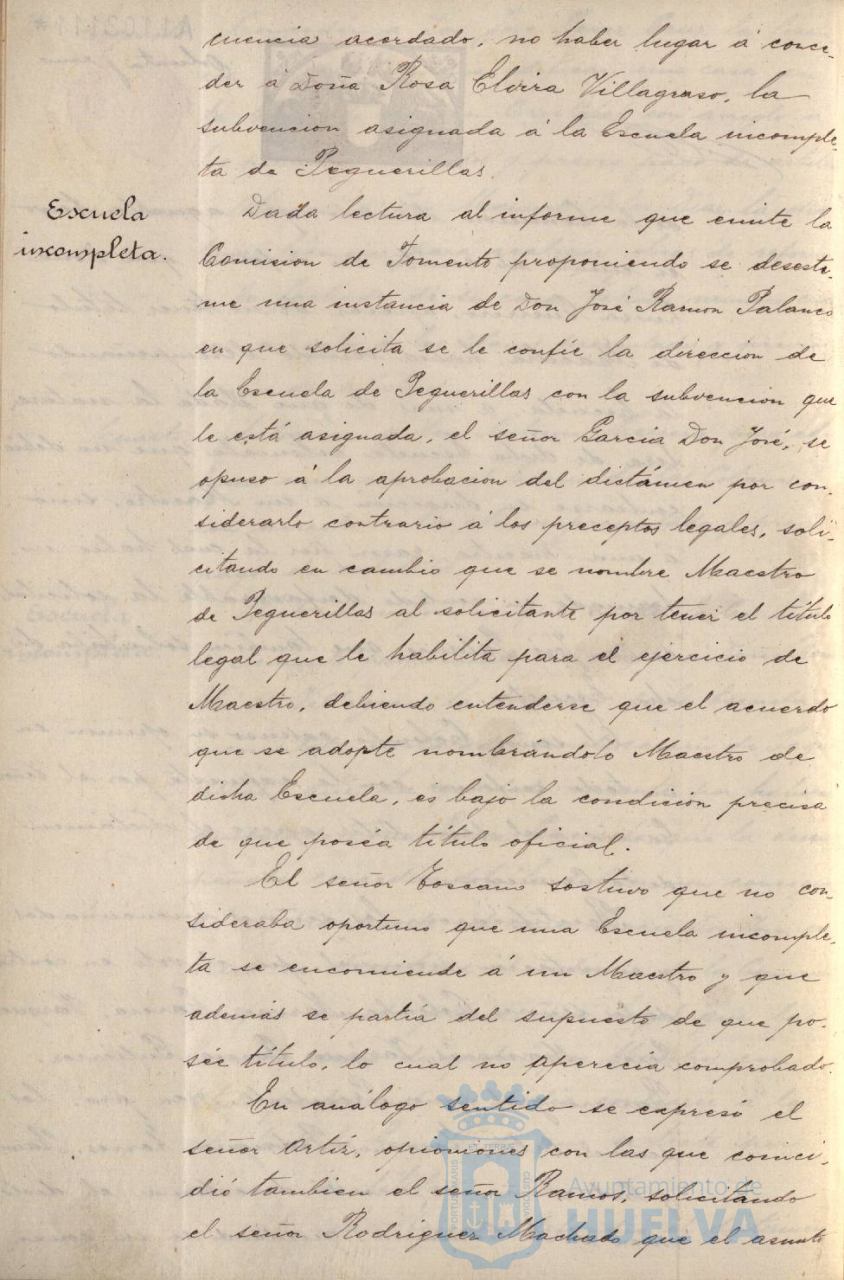 cuencia acordado, no haber lugar á conce-
der á Doña Rosa Elvira Villagraso, la
subvencion asignada á la Escuela incomple-
ta de Peguerillas.
Escuela
incompleta.
Dada lectura al informe que emite la
Comision de Fomento proponiendo se desesti-
me una instancia de Don José Ramon Palanco
en que solicita se le confíe la direccion de
la Escuela de Peguerillas con la subvencion que
le está asignada, el señor Garcia Don José, se
opuso á la aprobacion del dictámen por con-
siderarlo contrario á los preceptos legales, soli-
citando en cambio que se nombre Maestro
de Peguerillas al solicitante por tener el título
legal que le habilita para el ejercicio de
Maestro, debiendo entenderse que el acuerdo
que se adopte nombrándolo Maestro de
dicha Escuela, es bajo la condición precisa
de que poséa título oficial.
El señor Toscano sostuvo que no con-
sideraba oportuno que una Escuela incomple-
ta se encomiende á un Maestro y que
además se partía del supuesto de que po-
sée título, lo cual no aperecia comprobado.
En análogo sentido se expresó el
señor Ortiz, opiniones con las que coinci-
dió tambien el señor Ramos, solicitando
el señor Rodriguez Machado que el asunto
Ayuntamiento de
HUELVA